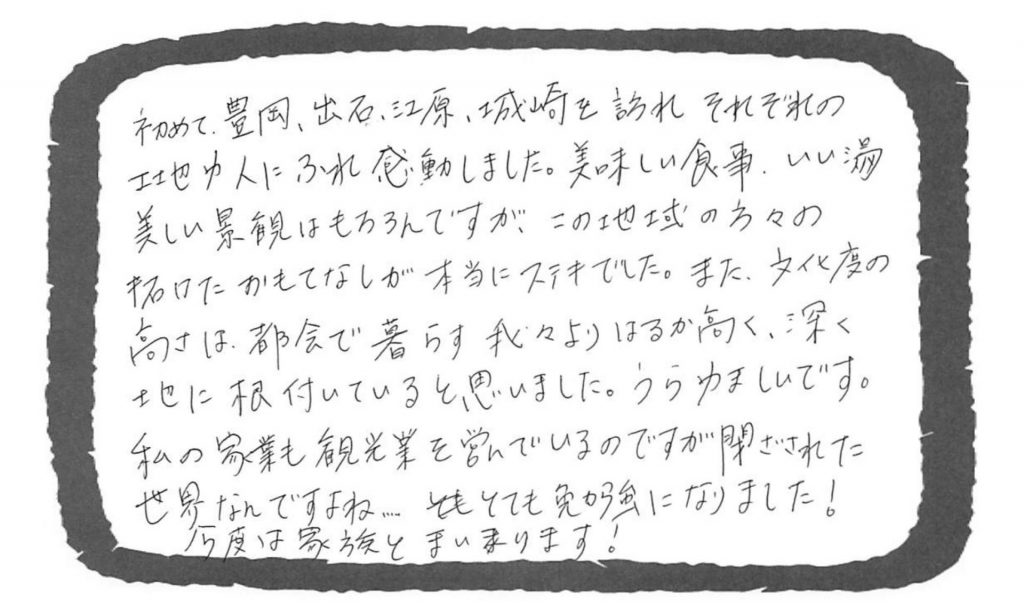 初めて、豊岡、出石、江原、城崎を訪れ それぞれの
土地や人にふれ感動しました。美味しい食事、いい湯
美しい景観はもちろんですが、この地域の方々の
拓けたおもてなしが本当にステキでした。また、文化度の
高さは、都会で暮らす我々よりはるか高く、深く
地に根付いていると思いました。うらやましいです。
私の家業も観光業を営んでいるのですが閉ざされた
世界なんですよね…… とてもとても勉強になりました！
今度は家族とまい承ります！